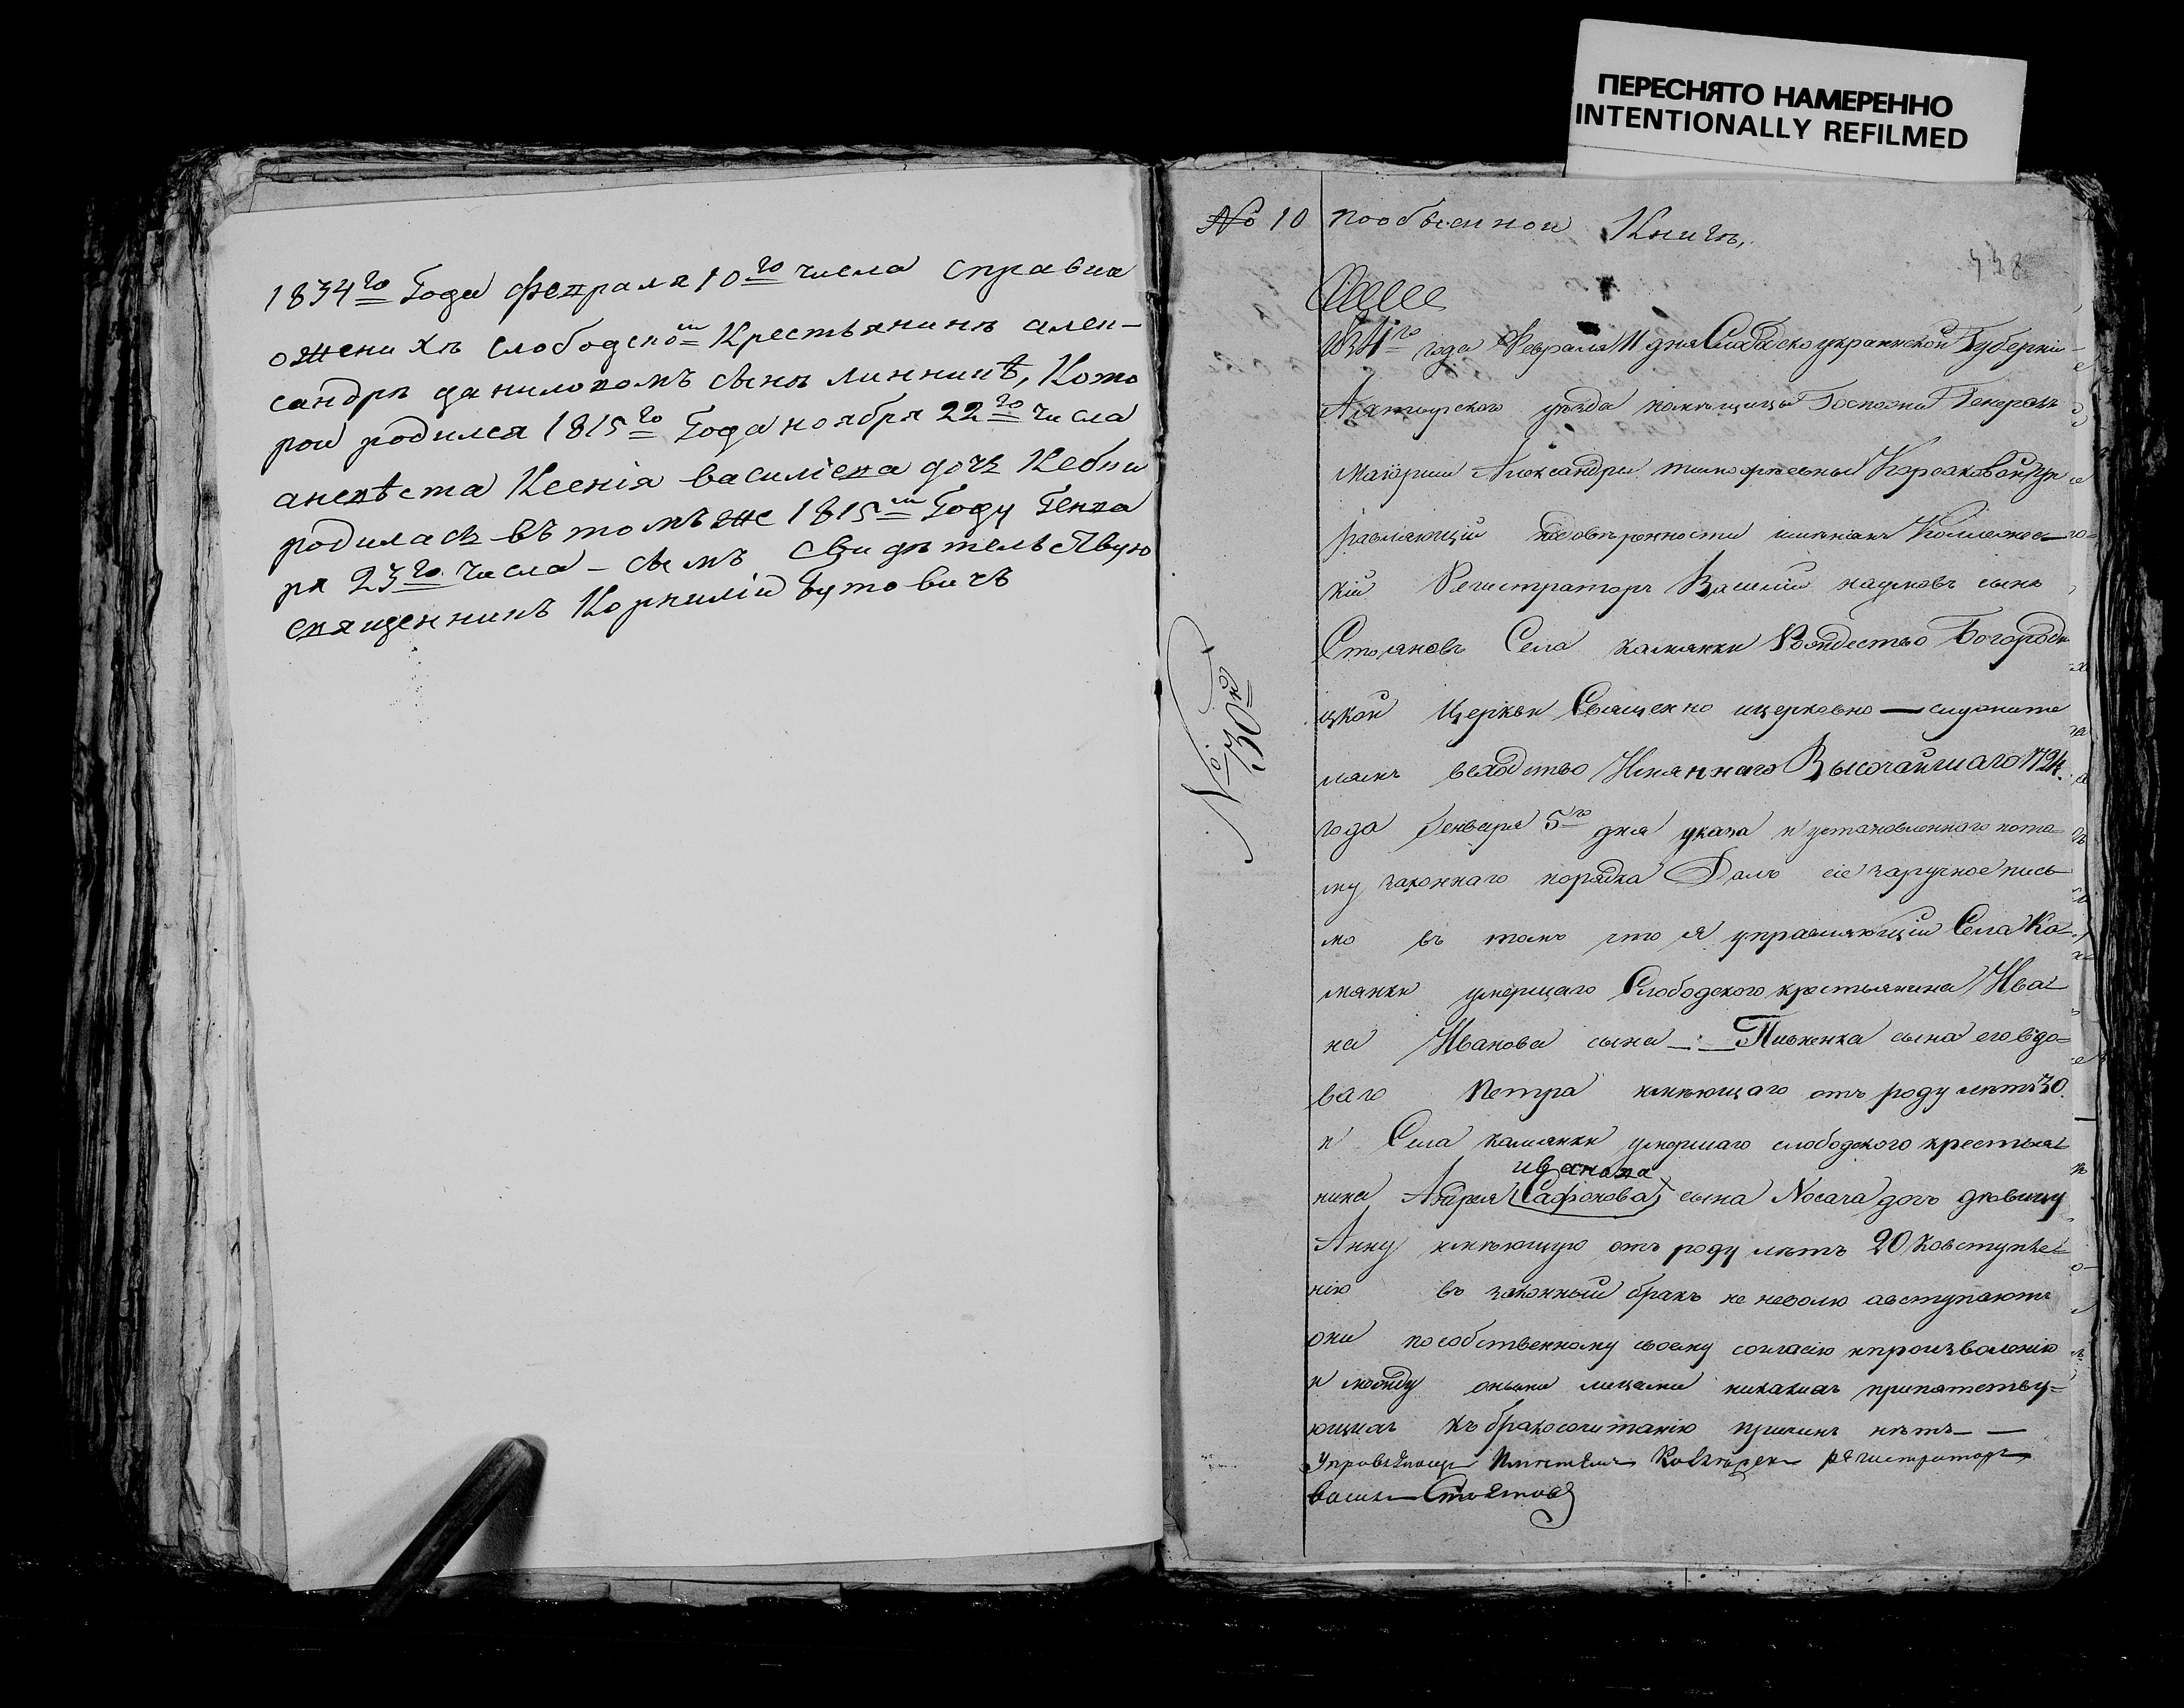 ПЕРЕСНЯТО НАМЕРЕННО
INTENTIONALLY REFILMED
1834го Года февраля 10го числа справки
ожених слободской Крестьянинъ алек-
сандръ даниловомъ сынъ линникъ, Кото
рои родился 1815го Года ноября 22го числа
аневѣста Ксенія василіева дочь
родилась въ томъ же 1815м Году Генва
ря 23го числа - сѣмъ свидѣтельствую
священникъ Корнилій Бутовичъ
№ 10 пообыскнои Книгѣ,
1834го года Февраля 11 дня Слободскоукраинской Губерніи
уѣзда помѣщицы Госпожи Генералъ
Маіорши Александры Корсаковой Уп
равляющій по довѣренности имѣніемъ Коллежес-
кій Регистраторъ Василій сынъ
Стояновъ Села камянки Рождество Богороди
цкой Церкви Священно ицерковно — служите
лямъ Имяннаго Высочайшаго 1724.
года Генваря 5го дня указа и установленнаго пото-
му законнаго порядка Далъ сіе заручное пись
мо въ томъ что я управляющій Села Ка-
мянки умершаго Слободского крестьянина Ива-
на Иванова сына — сына его вдо-
ваго Петра имѣющаго отъ роду лѣтъ 30.
и Села камянки умершаго слободского крестья-
иванова
нина Андрея Сафонова сына Носача дочь дѣвицу
Анну имѣющую отъ роду лѣтъ 20 Ковступле-
нію въ законный бракъ не неволю авступаютъ
они пособственному своему согласію ипроизволенію
и между оными лицами никакихъ припятству-
ющихъ къ бракосочитанію причинъ нѣтъ — —
регистраторъ
Стояновъ
№ 30й